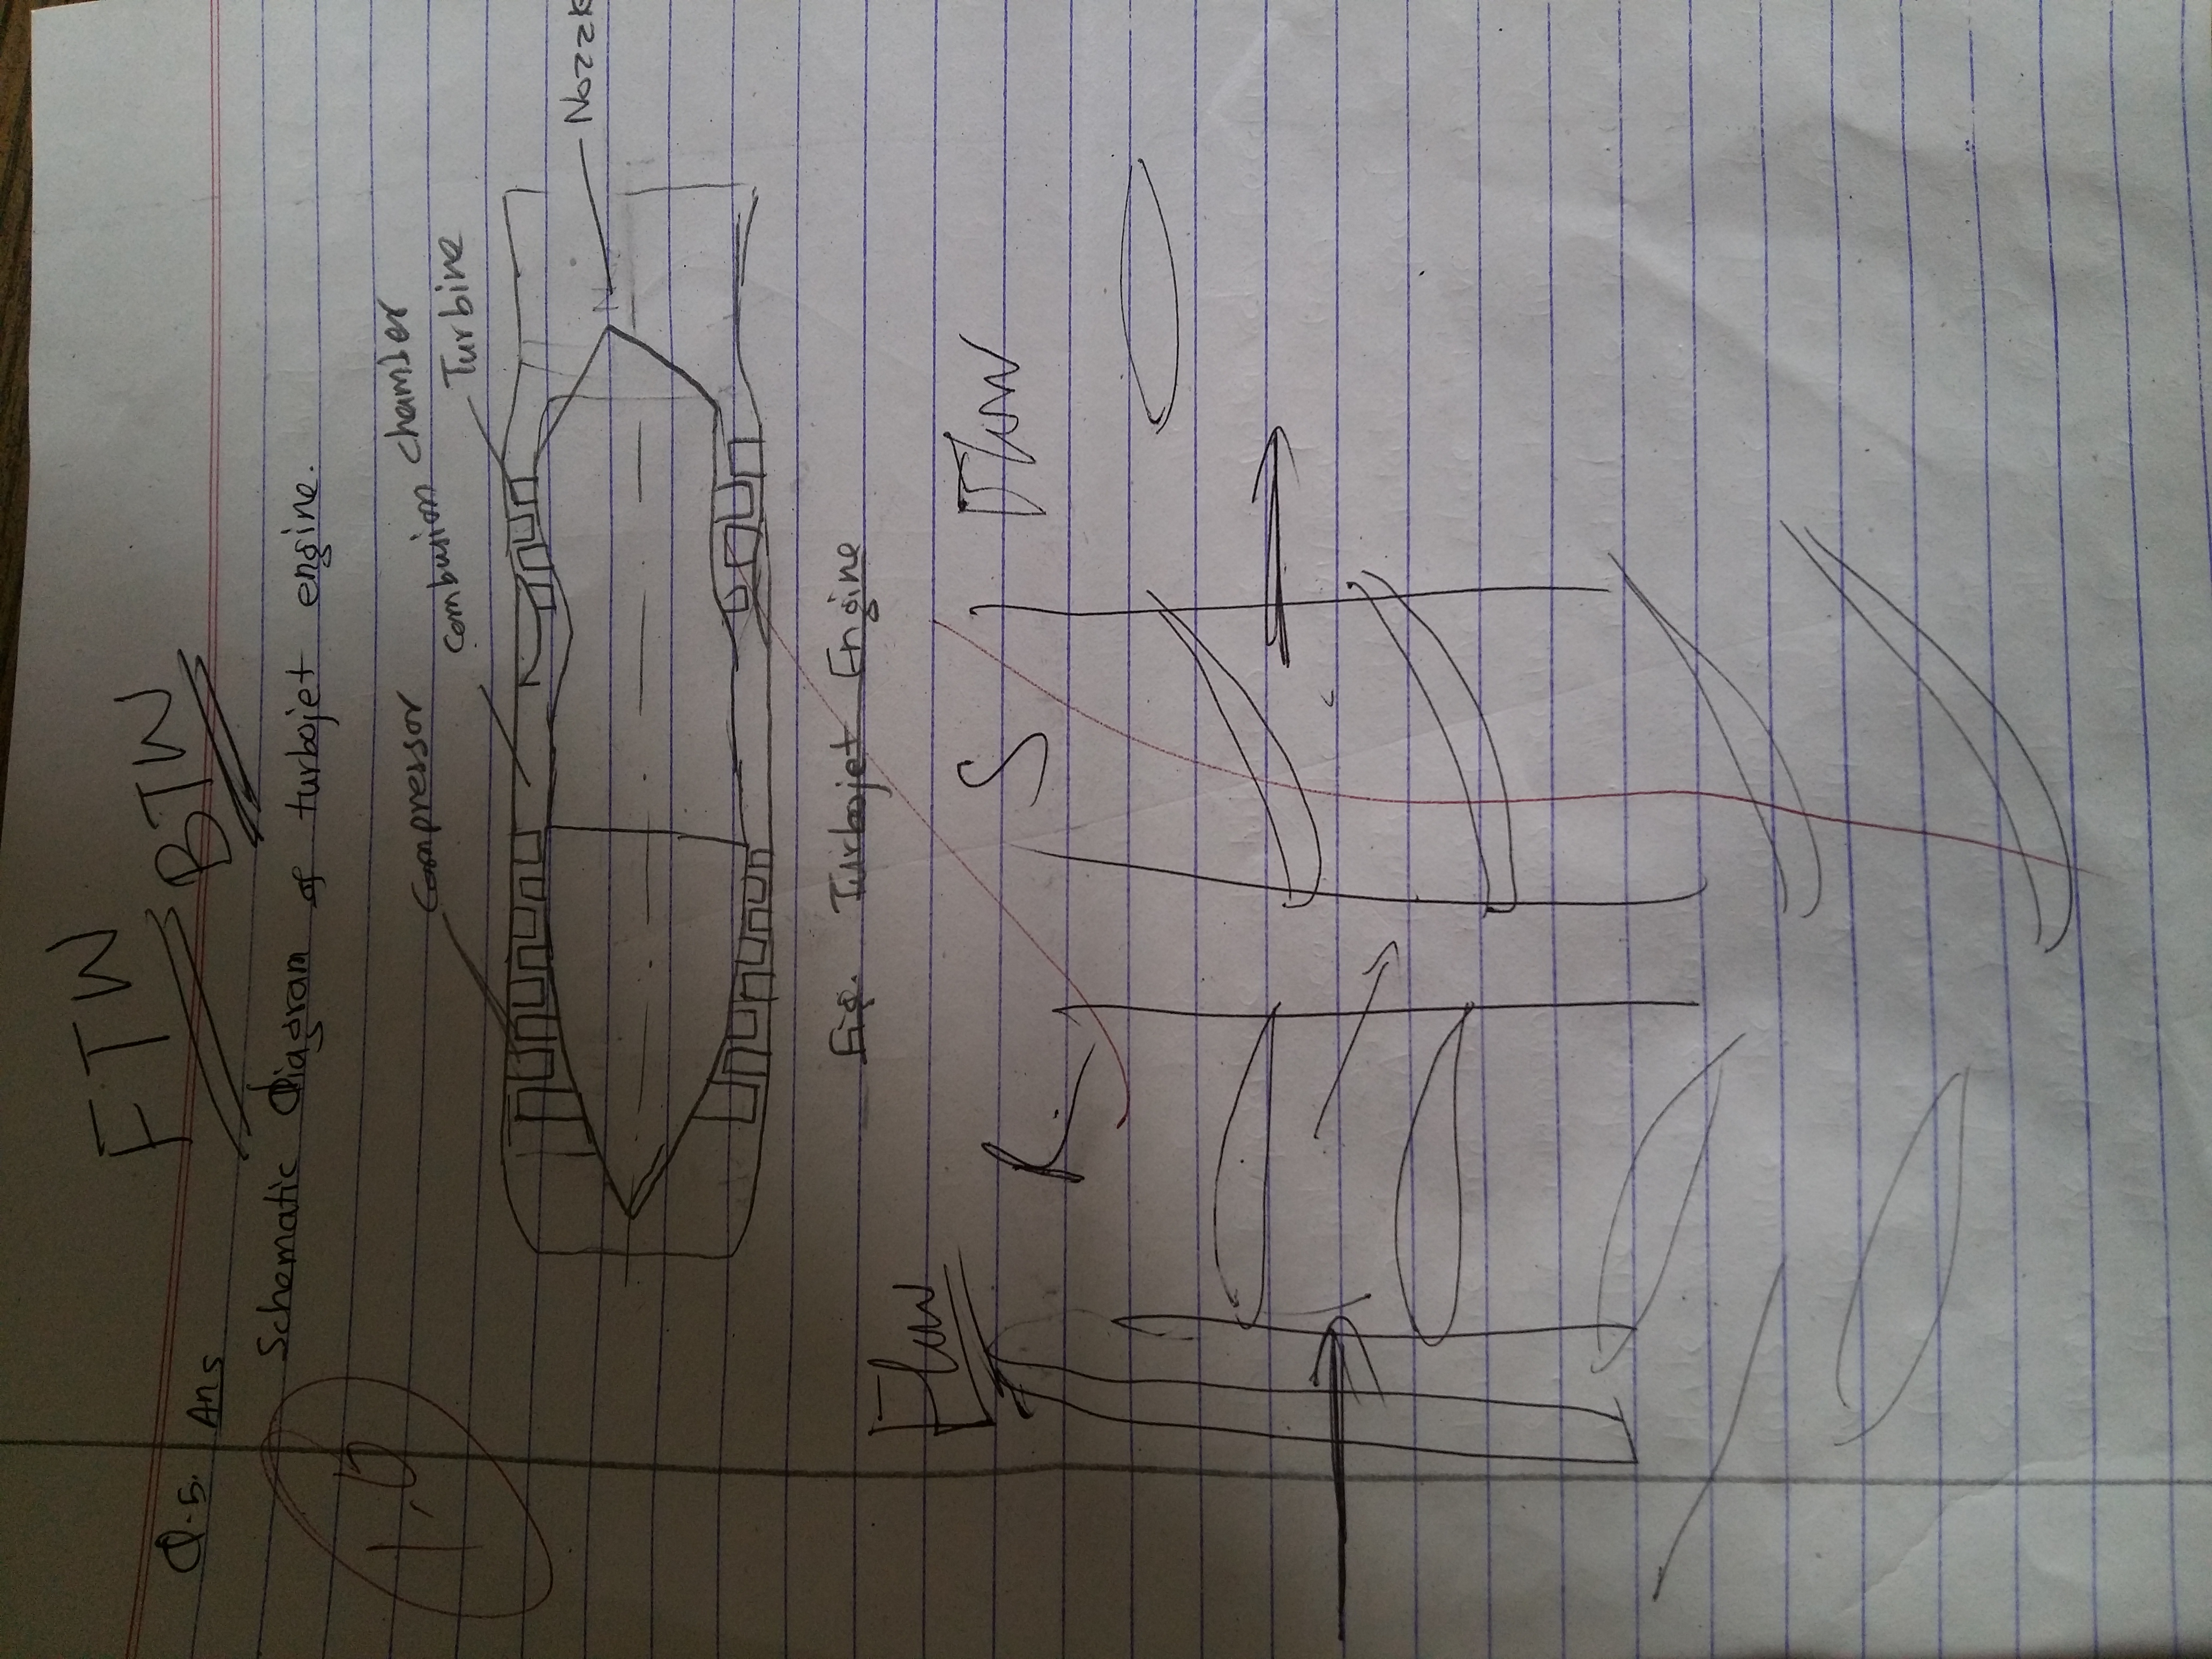 FTW
BTW
Q-5. Ans
Schematic Diagram of turbojet engine.
Compressor
combustion chamber
Turbine
Fig. Turbojet Engine
Flow
S
Flow